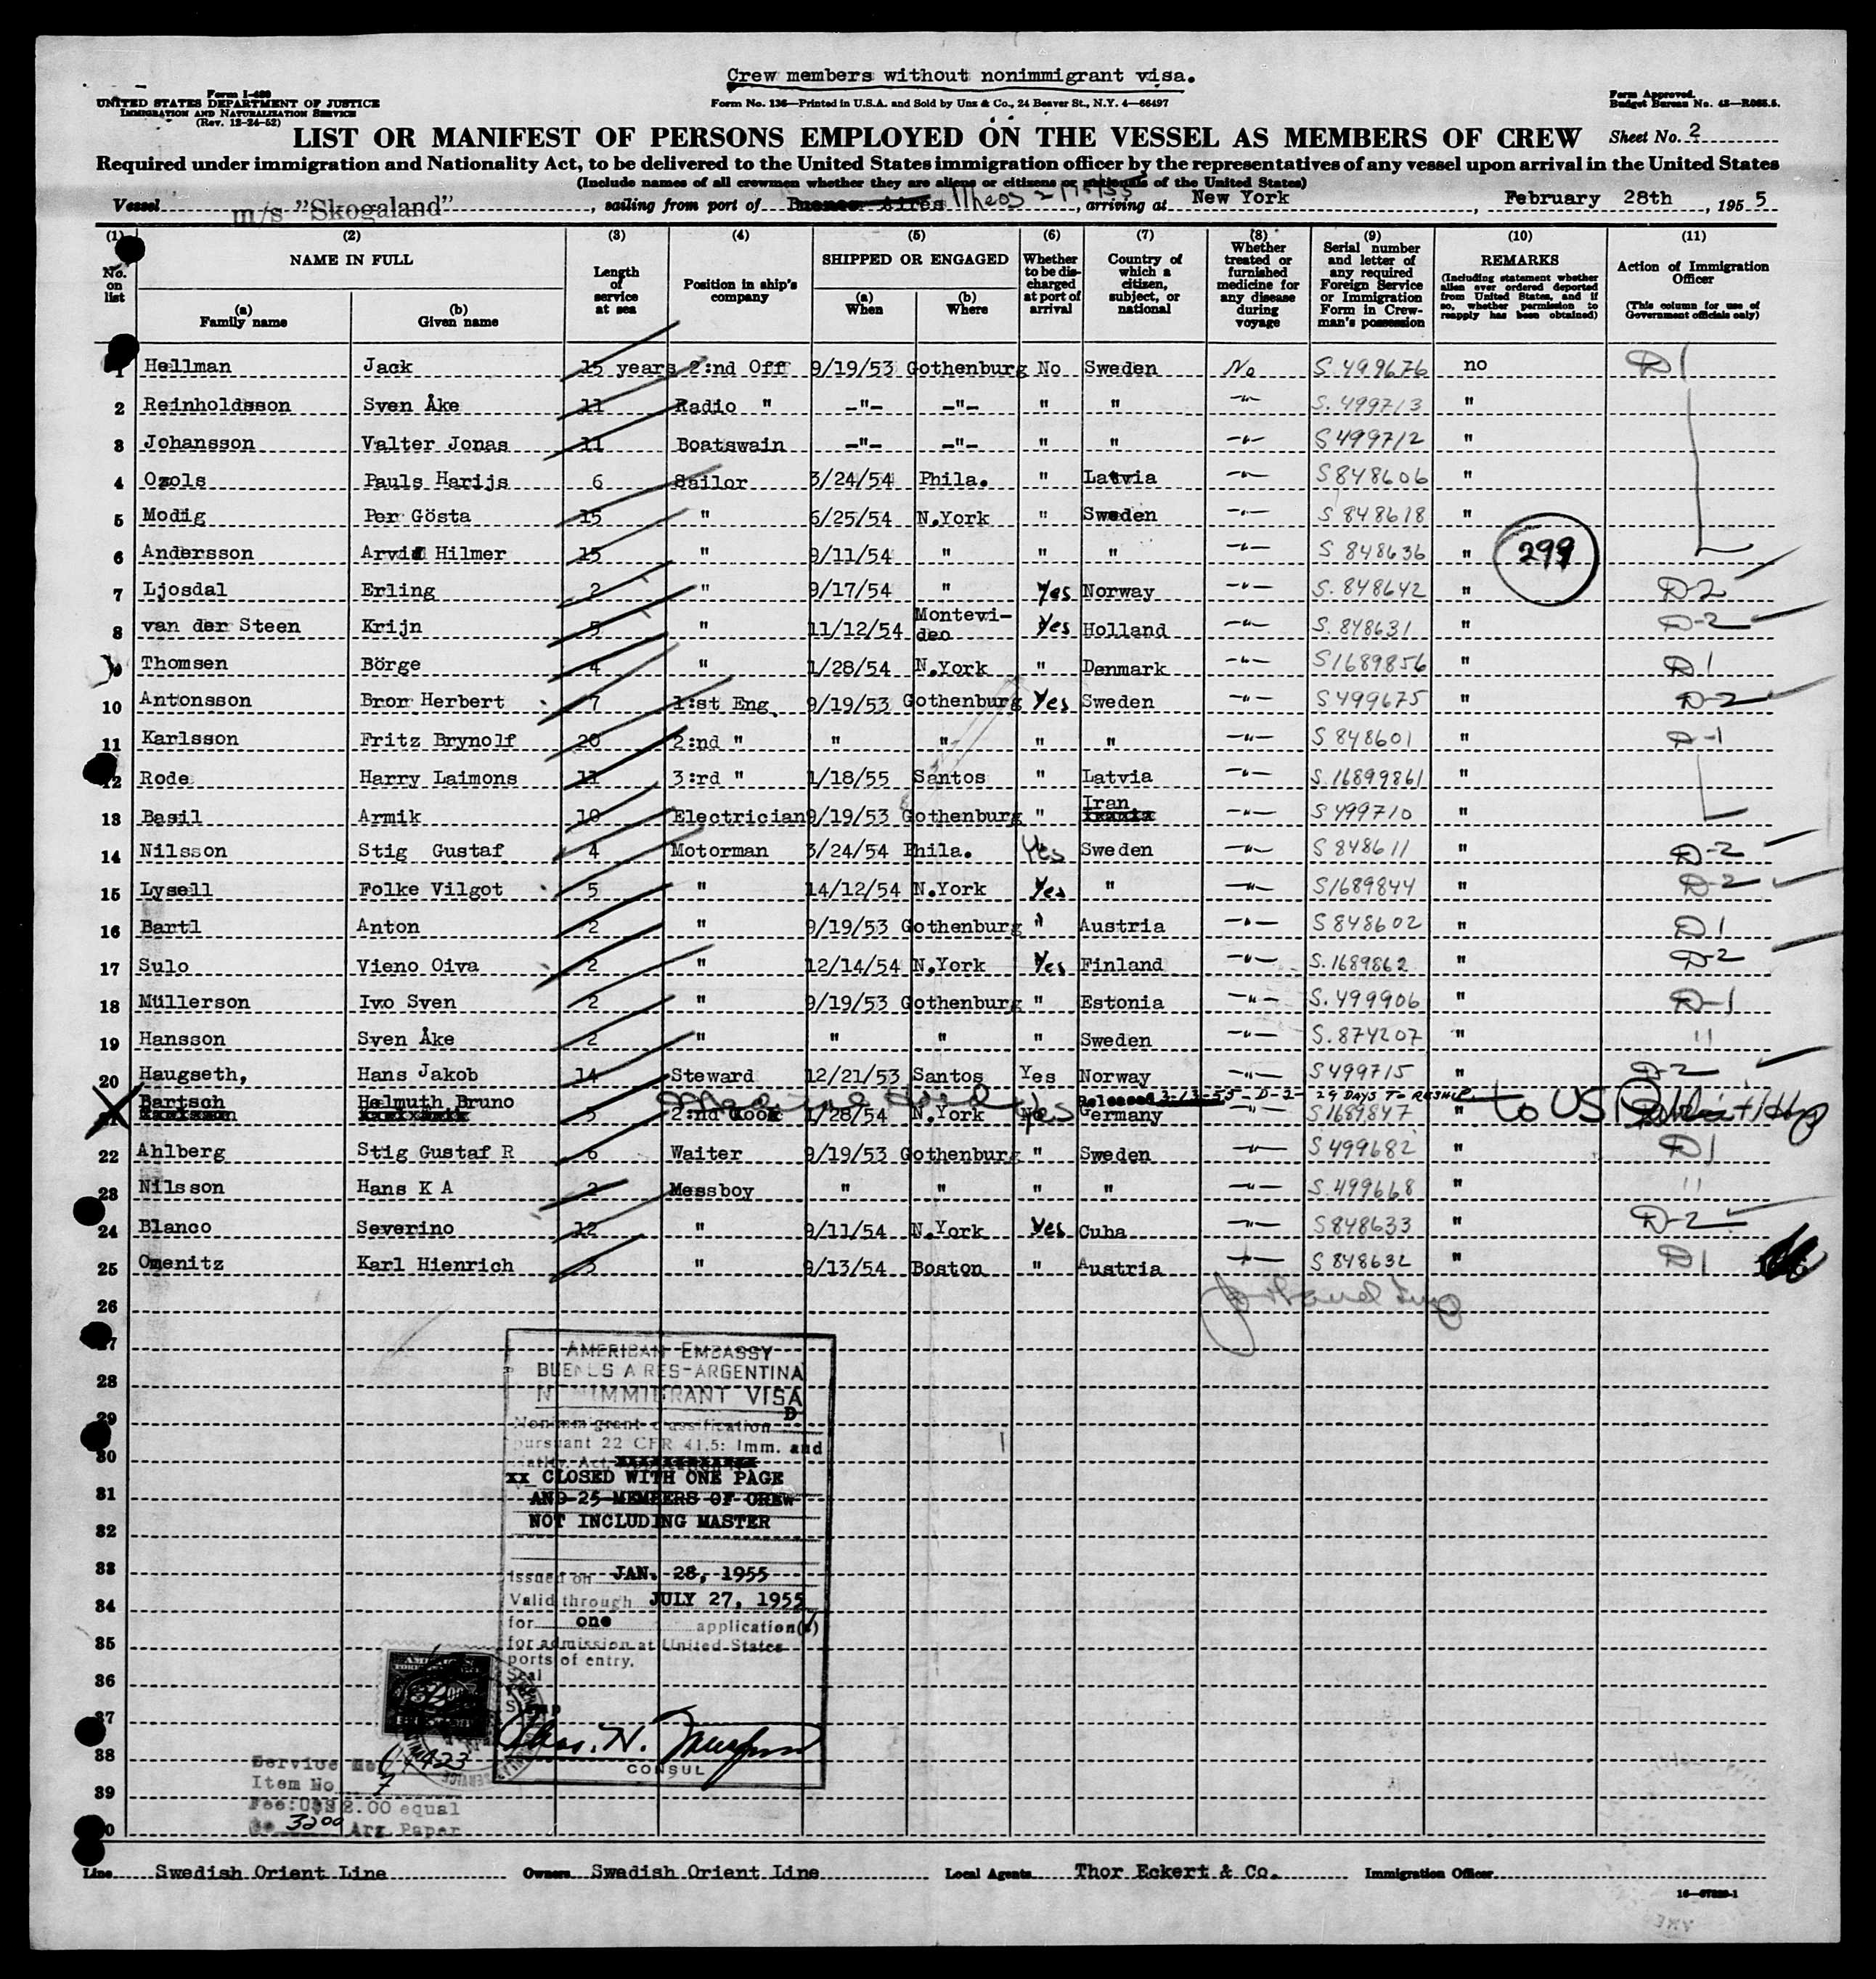 Crew members without nonimmigrant visa.
Form I-489
UNITED STATES DEPARTMENT OF JUSTICE
IMMIGRATION AND NATURALIZATION SERVICE
(Rev. 12-24-52)
Form No. 136—Printed in U.S.A. and Sold by Unz & Co., 24 Beaver St., N.Y. 4—66497
Form Approved.
Budget Bureau No. 43—R065.5.
LIST OR MANIFEST OF PERSONS EMPLOYED ON THE VESSEL AS MEMBERS OF CREW
Sheet No. 2
Required under immigration and Nationality Act, to be delivered to the United States immigration officer by the representatives of any vessel upon arrival in the United States
(Include names of all crewmen whether they are aliens or citizens or nationals of the United States)
Vessel m/s "Skogaland", sailing from port of Buenos Aires Ilheos, arriving at New York, February 28th, 1955
(1) (2) (3) (4) (5) (6) (7) (8) (9) (10) (11)
No. on list
NAME IN FULL
(a) Family name
(b) Given name
Length of service at sea
Position in ship's company
SHIPPED OR ENGAGED
(a) When
(b) Where
Whether to be discharged at port of arrival
Country of which a citizen, subject, or national
Whether treated or furnished medicine for any disease during voyage
Serial number and letter of any required Foreign Service or Immigration Form in Crewman's possession
REMARKS
(Including statement whether alien ever ordered deported from United States, and if so, whether permission to reapply has been obtained)
Action of Immigration Officer
(This column for use of Government officials only)
1 Hellman Jack 15 years 2:nd Off 9/19/53 Gothenburg No Sweden No S 499676 no D1
2 Reinholdsson Sven Åke 11 Radio " —"— —"— " " —"— S. 499713 "
3 Johansson Valter Jonas 11 Boatswain —"— —"— " " —"— S 499712 "
4 Ozols Pauls Harijs 6 Sailor 3/24/54 Phila. " Latvia —"— S 848606 "
5 Modig Per Gösta 15 " 6/25/54 N.York " Sweden —"— S 848618 "
6 Andersson Arvid Hilmer 15 " 9/11/54 " " " —"— S 848636 "
299
7 Ljosdal Erling 2 " 9/17/54 " Yes Norway —"— S. 848642 " D-2
8 van der Steen Krijn 5 " 11/12/54 Montevideo Yes Holland —"— S. 848631 " D-2
9 Thomsen Börge 4 " 1/28/54 N.York " Denmark —"— S1689856 " D1
10 Antonsson Bror Herbert 7 1:st Eng 9/19/53 Gothenburg Yes Sweden —"— S499675 " D-2
11 Karlsson Fritz Brynolf 20 2:nd " " " " " —"— S 848601 " D-1
12 Rode Harry Laimons 11 3:rd " 1/18/55 Santos " Latvia —"— S.16899861 "
13 Basil Armik 10 Electrician 9/19/53 Gothenburg " Iran —"— S 499710 "
14 Nilsson Stig Gustaf 4 Motorman 3/24/54 Phila. Yes Sweden —"— S 848611 " D-2
15 Lysell Folke Vilgot 5 " 14/12/54 N.York Yes " —"— S1689844 " D-2
16 Bartl Anton 2 " 9/19/53 Gothenburg " Austria —"— S 848602 " D1
17 Sulo Vieno Oiva 2 " 12/14/54 N.York Yes Finland —"— S.1689862 " D-2
18 Müllerson Ivo Sven 2 " 9/19/53 Gothenburg " Estonia —"— S. 499906 " D-1
19 Hansson Sven Åke 2 " " " " Sweden —"— S. 874207 " "
20 Haugseth, Hans Jakob 14 Steward 12/21/53 Santos Yes Norway —"— S499715 " D-2
Released 3-13-55 - D-2- 29 DAYS TO RESHIP
21 Bartsch Helmuth Bruno 5 2:nd Cook 1/28/54 N.York Yes Germany —"— S1689847 " to US
22 Ahlberg Stig Gustaf R 6 Waiter 9/19/53 Gothenburg " Sweden —"— S 499682 " D1
23 Nilsson Hans K A 2 Messboy " " " " —"— S. 499668 " "
24 Blanco Severino 12 " 9/11/54 N.York Yes Cuba —"— S 848633 " D-2
25 Omenitz Karl Hienrich 3 " 9/13/54 Boston " Austria —"— S 848632 " D1
26
27
28
29
30
31
32
33
34
35
36
37
38
39
40
AMERICAN EMBASSY
BUENOS AIRES-ARGENTINA
NONIMMIGRANT VISA
Nonimmigrant classification D
pursuant 22 CFR 41.5: Imm. and
Natlty. Act
xx CLOSED WITH ONE PAGE
AND 25 MEMBERS OF CREW
NOT INCLUDING MASTER
Issued on JAN. 28, 1955
Valid through JULY 27, 1955
for one application(s)
for admission at United States
ports of entry.
Seal
Stamp
CONSUL
Service No.
Item No 7
Fee: US$ 2.00 equal
3200 Arg. Paper
Line Swedish Orient Line Owners Swedish Orient Line Local Agents Thor Eckert & Co. Immigration Officer
16—67829-1